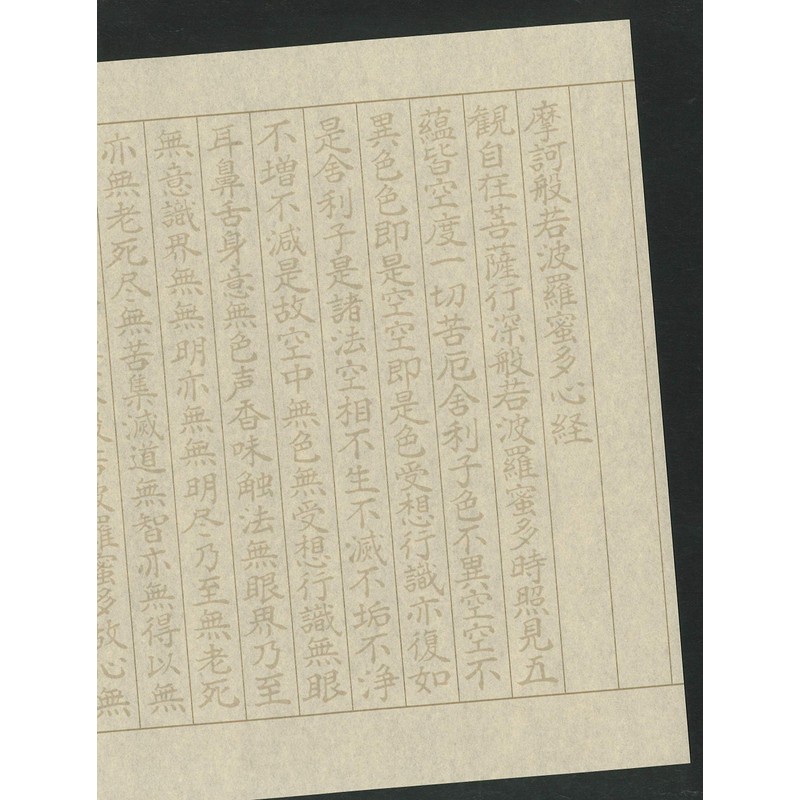 摩訶般若波羅蜜多心経
観自在菩薩行深般若波羅蜜多時照見五
蘊皆空度一切苦厄舎利子色不異空空不
異色色即是空空即是色受想行識亦復如
是舎利子是諸法空相不生不滅不垢不浄
不増不減是故空中無色無受想行識無眼
耳鼻舌身意無色声香味触法無眼界乃至
無意識界無無明亦無無明尽乃至無老死
亦無老死尽無苦集滅道無智亦無得以無
若波羅蜜多故心無